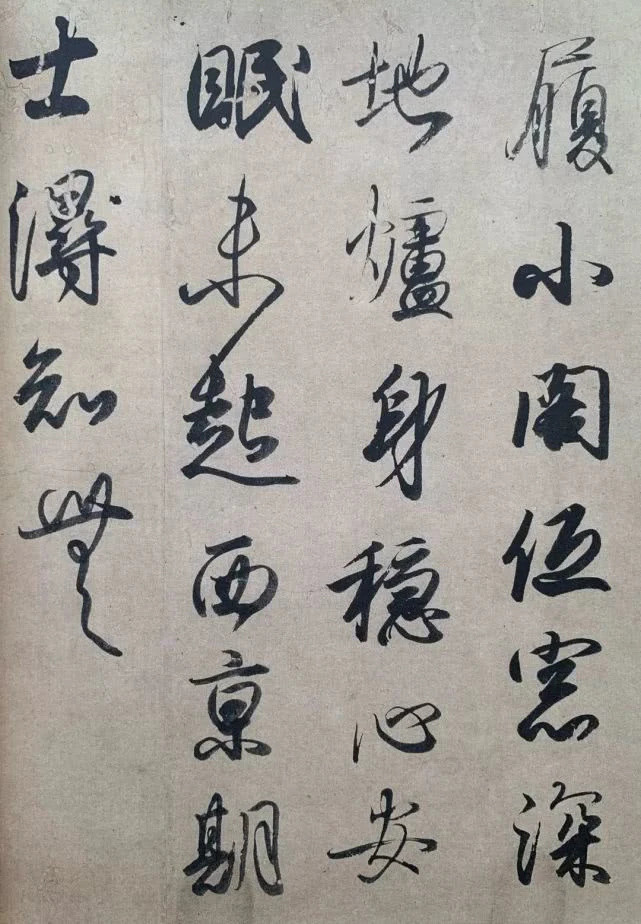 履小閣低窓深
地爐身穩心安
眠未起西京朝
士得知無